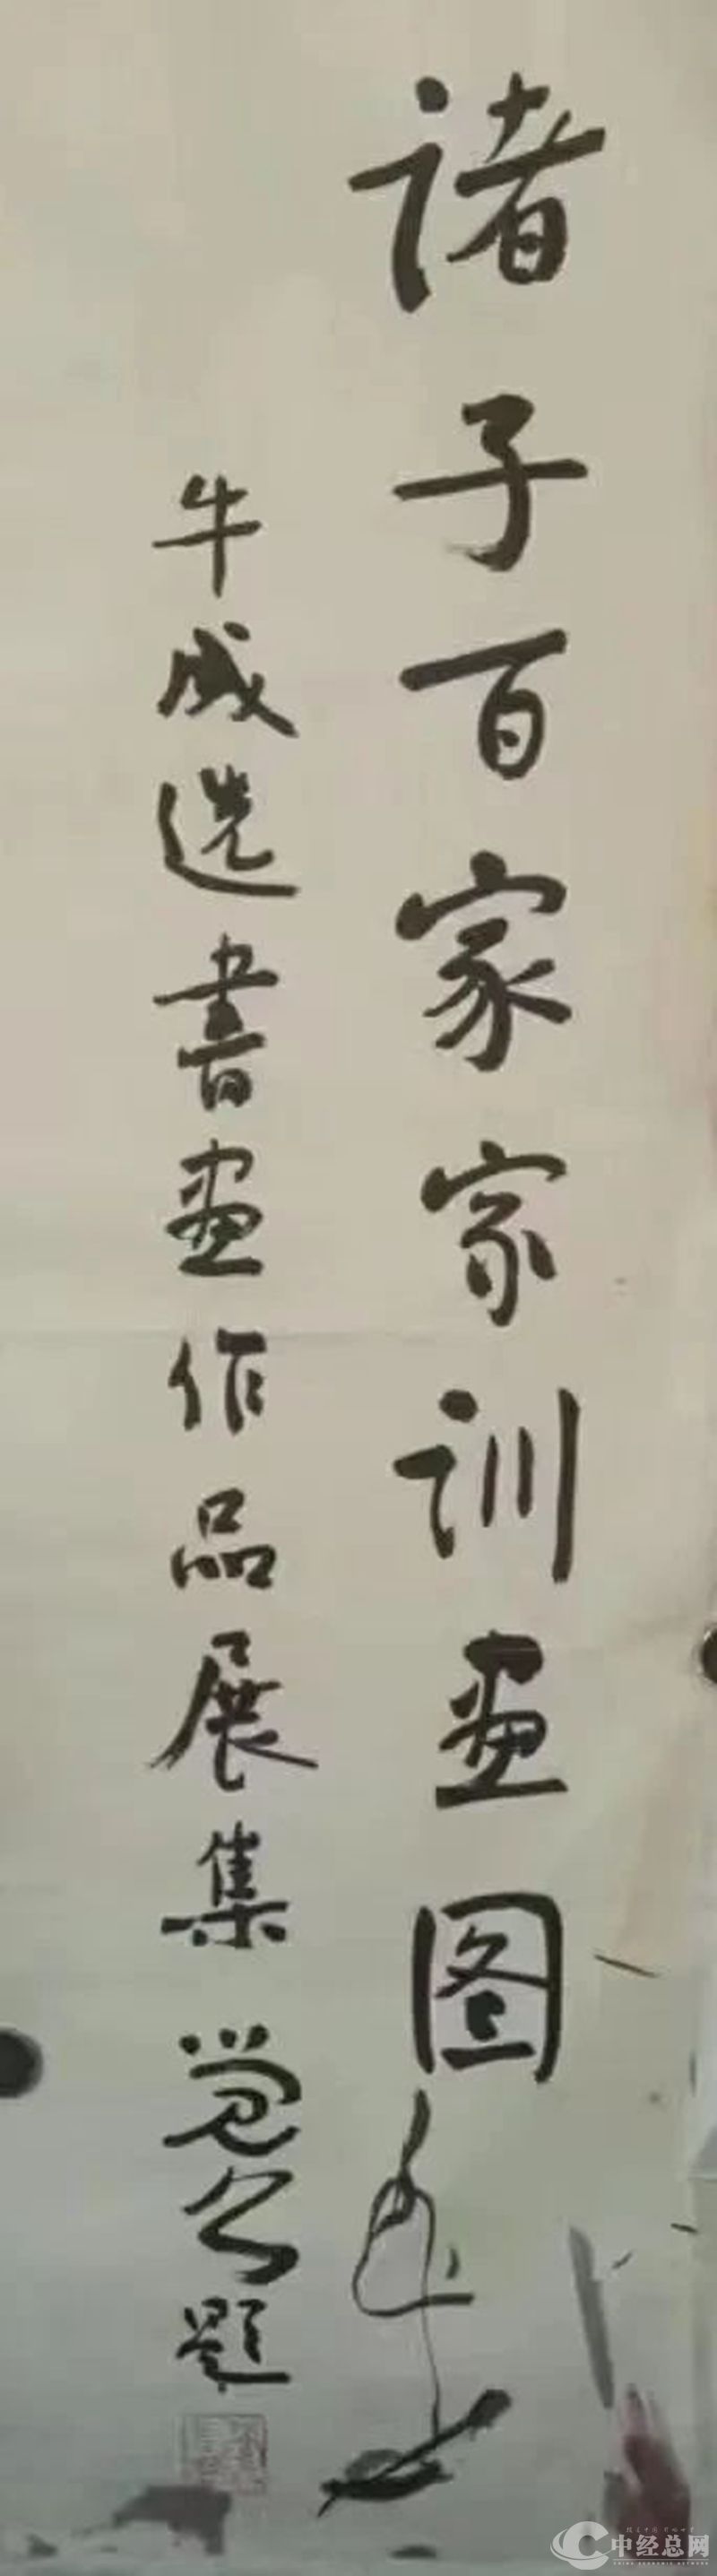 诸子百家家训画图
牛成选書画作品展集 觉公题
中经总网
CHINA ECONOMIC NETWORK